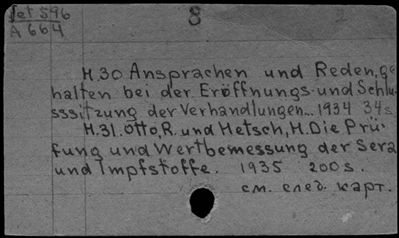 Let 596
A 664
8
H.30 Ansprachen und Reden, ge
halten bei der Eröffnungs-und Schlu
sssitzung der Verhandlungen... 1934 34s
H.31. Otto, R. und Hetsch, H. Die Prü-
fung und Wertbemessung der Sera
und Impfstoffe. 1935 200s.
см. след. карт.